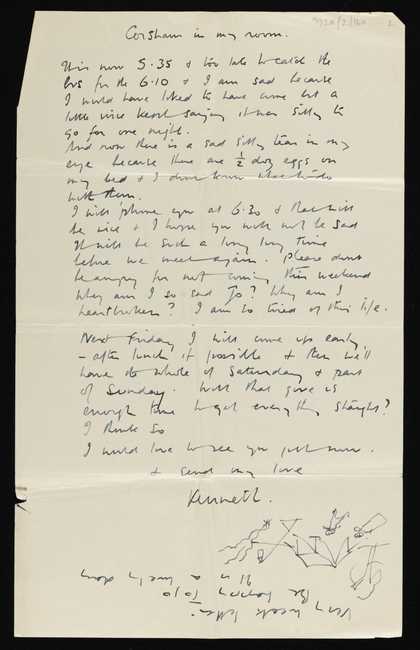 Corsham in my room.
It is now 5.35 & too late to catch the
bus for the 6.10 & I am sad because
I would have liked to have come but a
little voice kept saying it was silly to
go for one night.
And now there is a sad silly tear in my
eye because there are ½ doz eggs on
my bed & I dont know what to do
with them.
I will 'phone you at 6.30 & that will
be nice & I hope you will not be sad
It will be such a long long time
before we meet again. Please dont
be angry for not coming this weekend
Why am I so sad Jo? Why am I
heartbroken? I am so tired of this life.
Next Friday I will come up early,
- after lunch if possible & then we'll
have the whole of Saturday & part
of Sunday. Will that give us
enough time to get everything straight?
I think so
I would love to see you just now.
& send my love
Kenneth.
Very weak letter
Be happy Jo
in a lovely day